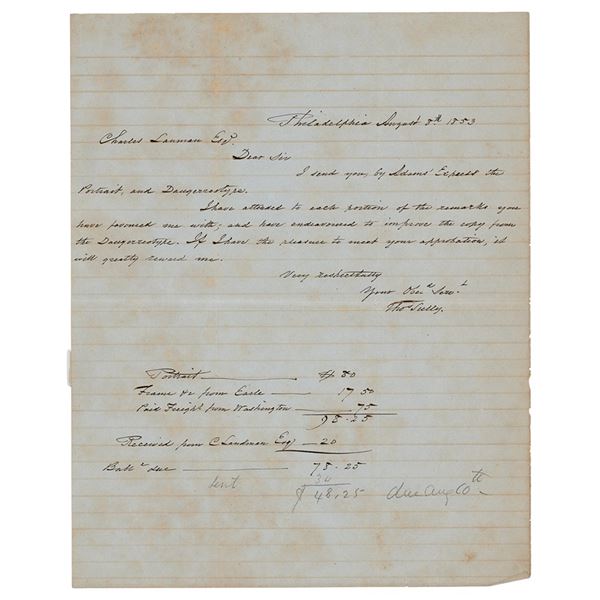 Philadelphia August 8th. 1853
Charles Lanman Esqr.
Dear Sir
I send you by Adams' Express the
Portrait, and Daugereotype.
I have attended to each portion of the remarks you
have favoured me with; and have endeavoured to improve the copy from
the Daugereotype. If I have the pleasure to meet your approbation, it
will greatly reward me.
Very respectfully
Your Obed Servt.
Thos Sully.
Portrait $ 80
Frame &c from Earle 17.50
Paid Freight from Washington 75
98.25
Received from C Landman Esqr 20
Balce due 78.25
sent 30
$ 48.25 due Aug 10th